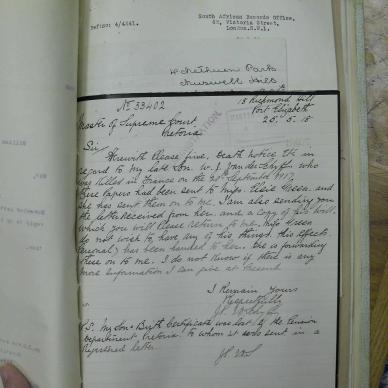 South African Records Office,
42, Victoria Street,
London.S.W.1.
Ref:No: 4/4441.
Methuen Park
Muswell Hill
No 33402
18 Richmond Hill
Port Elizabeth
25.5.18
Master of Supreme Court
Pretoria
Sir
Herewith Please find, Death notice &c in
regard to my late Son. W. J. who
was killed in France on the 20th September 1917.
These papers had been sent to Miss. Elsie Green. and
she has sent them on to me. I am also sending you
the letter received from her. and a copy of his Will.
which you will Please return to me. Miss Green
do not wish to have any of his things, this effects
(Personal) has been handed to her. She is forwarding
these on to me. I do not know if there is any
more information I can give at Present
I Remain Yours
Respectfully
P.S. My Son Birth Certificate was lost by the Pension
Department, Pretoria, to whom it was sent in a
Registered letter.